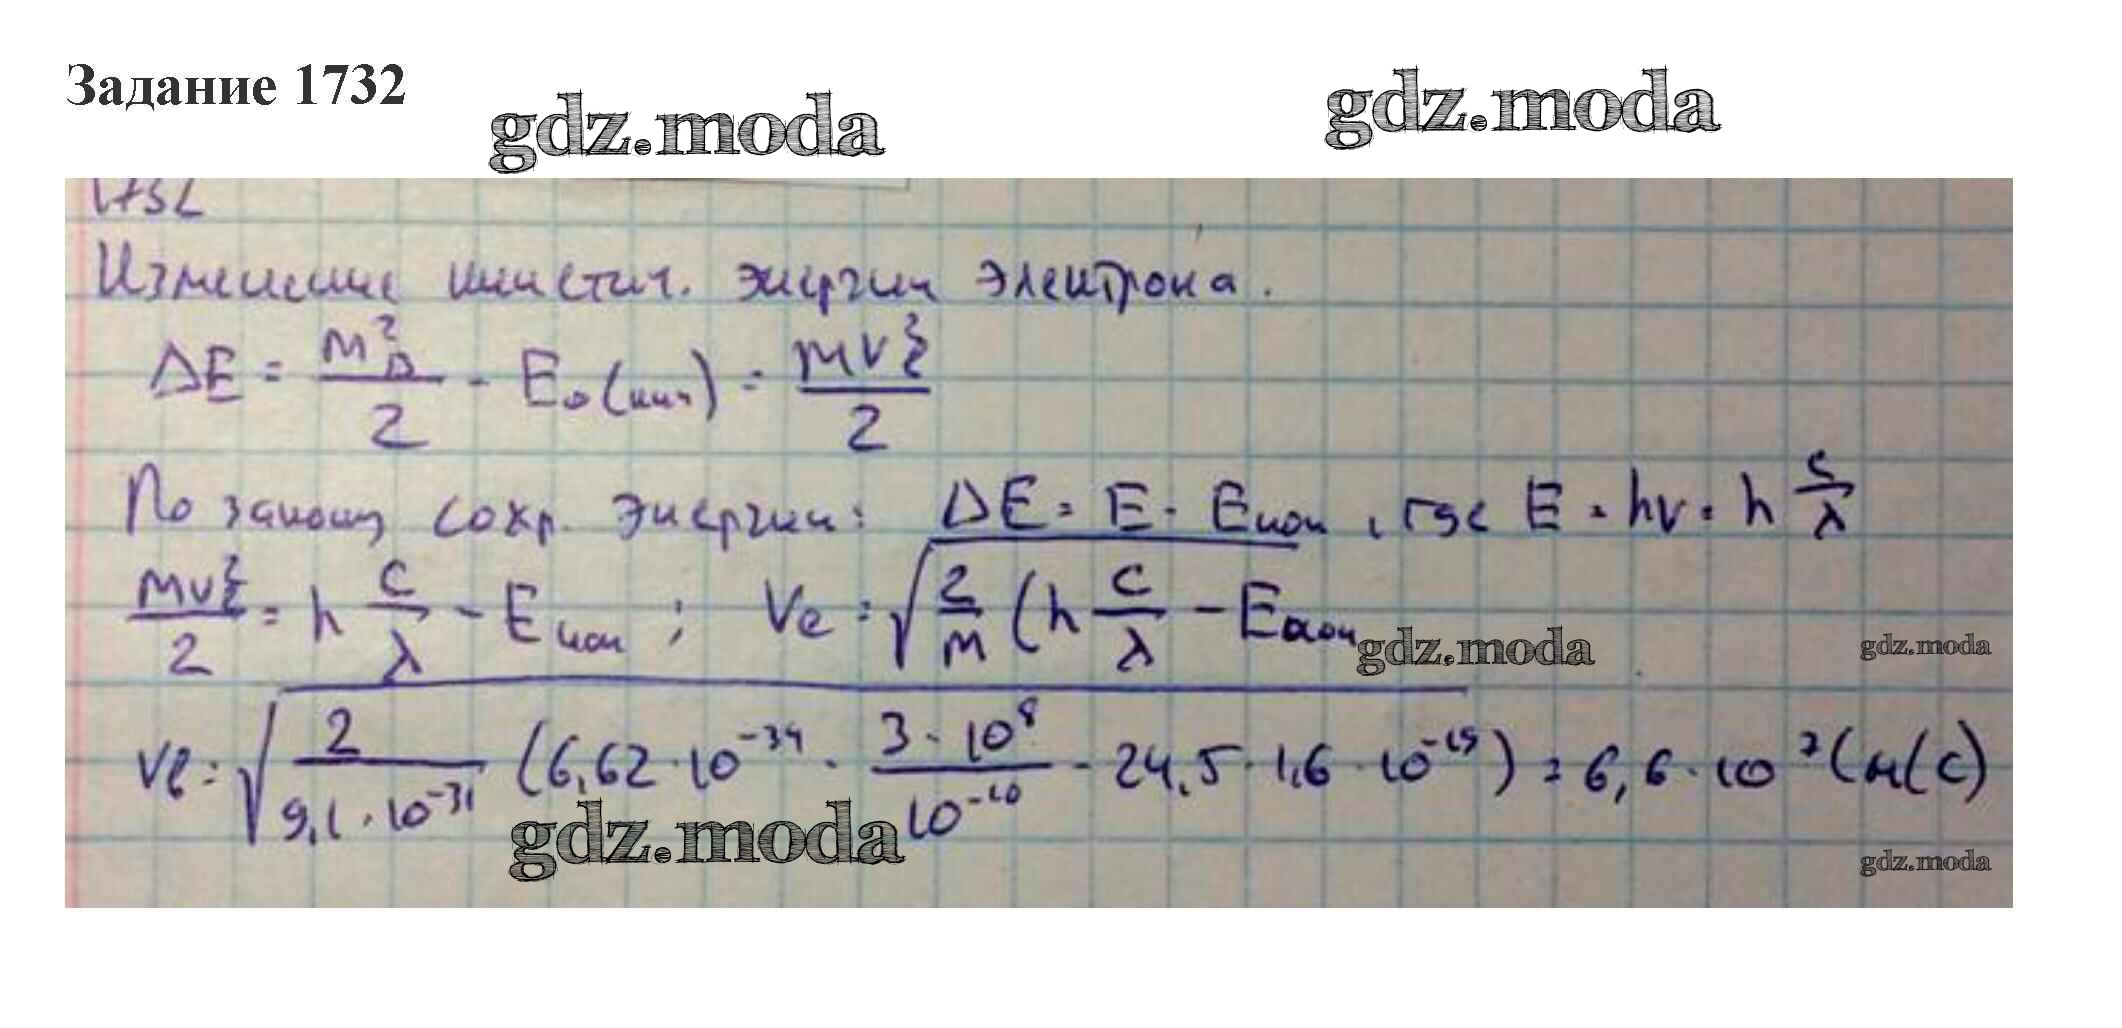 Задание 1732
gdz.moda
gdz.moda
1732
Изменение кинетич. энергии электрона.
ΔE = mv²/2 - E₀(кин) = mvₑ²/2
По закону сохр. энергии: ΔE = E - Eион, где E = hν = h c/λ
mvₑ²/2 = h c/λ - Eион ; Ve = √(2/m (h c/λ - Eион
gdz.moda
gdz.moda
Ve = √(2/9,1·10⁻³¹ (6,62·10⁻³⁴ · 3·10⁸/10⁻¹⁰ - 24,5·1,6·10⁻¹⁹) = 6,6·10⁷(м/с)
gdz.moda
gdz.moda